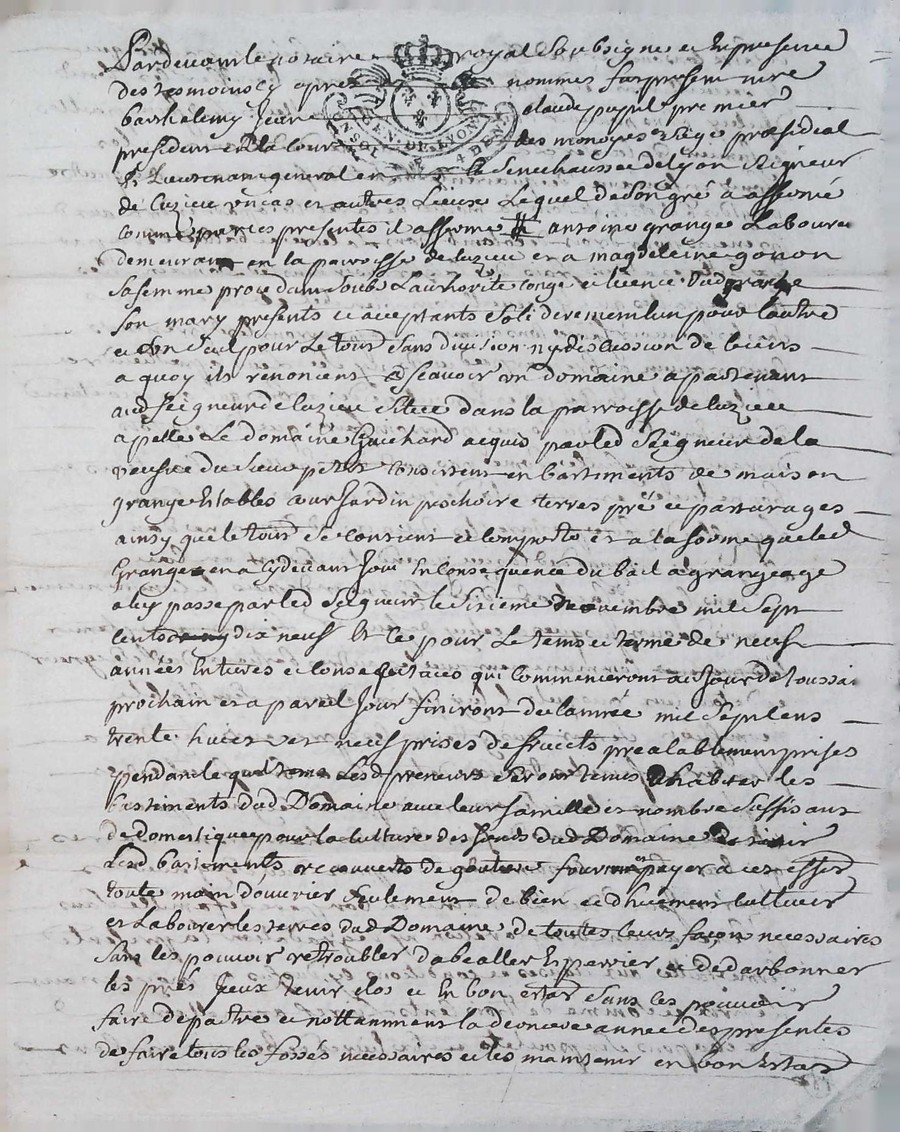 Pardevant le notaire royal soubsigné et en presence
des tesmoins cy apres nommes fut present mre
barthelemy jean claude pupil premier
president en la cour des monoyes siege presidial
& Lieutenant general en la Seneschaussee de lyon seigneur
GEN. DE LYON
4 DEN
de Luzieu en cas et autres Lieux Lequel de son gré a affermé
comme par ces presentes il afferme a antoine grange Laboureur
demeurant en la parroisse de luzieu et a magdeleine gonon
sa femme procedant soubs Lauthorité conge et licence dud grange
son mary presents et acceptants solidairement lun pour lautre
et un seul pour le tout sans division ny discussion de biens
a quoy ils renoncent scavoir un domaine apartenant
aud seigneur de luzieu situé dans la parroisse de luzieu
apellé Le domaine Guichard acquis par led Seigneur de la
veufve du sieur petit consistant en bastiments de maison
grange Estables cour Jardin terres pré et pasturages
ainsy que le tout se contient et comporte et a la forme que led
Grange en a cy devant Joui En consequence du bail a grangeage
a luy passé par led Seigneur le Sixieme novembre mil Sept
cents dix neuf Et ce pour Le tems et terme de neuf
années Entieres et consequtives qui commenceront au Jour de toussaint
prochain et a pareil Jour finiront de lannée mil Sept cens
trente huict et neuf prises de fruicts prealablement prises
pendant lequel tems Lesd preneurs seront tenus dhabiter les
bastiments dud Domaine avec leur famille et nombre suffisant
de domestiques pour la culture des fonds dud Domaine
Lesd bastiments recouverts de goutiere fournir payer a ces effets
toute main douvrier seulement de bien et duement cultiver
et Labourer les terres dud Domaine de toutes leurs façons necessaires
sans les pouvoir retroubler dabealler Esparvier et de darbonner
les prés Yceux tenir clos et En bon estat sans les pouvoir
faire depaitre et nottamment la derniere année des presentes
de faire tous les fossés necessaires et les maintenir en bon Estat